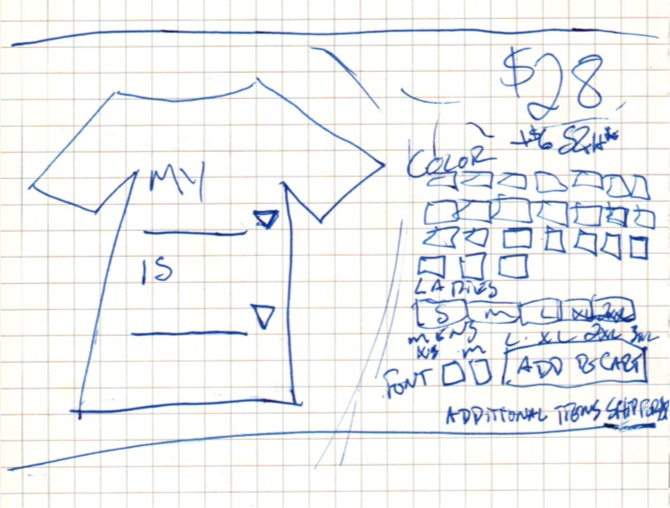 MY
IS
$28
+$6 S&H*
COLOR
LADIES
S M L XL 2XL
MENS
XS M L XL 2XL 3XL
FONT
ADD TO CART
ADDITIONAL ITEMS